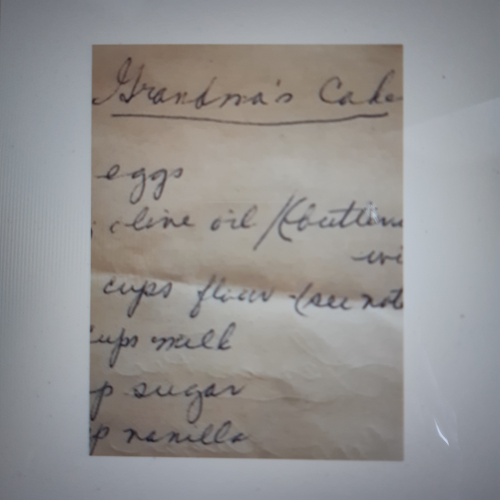 Grandma's Cake
eggs
olive oil /(butter
wi
cups flour (see not
cups milk
p sugar
p vanilla